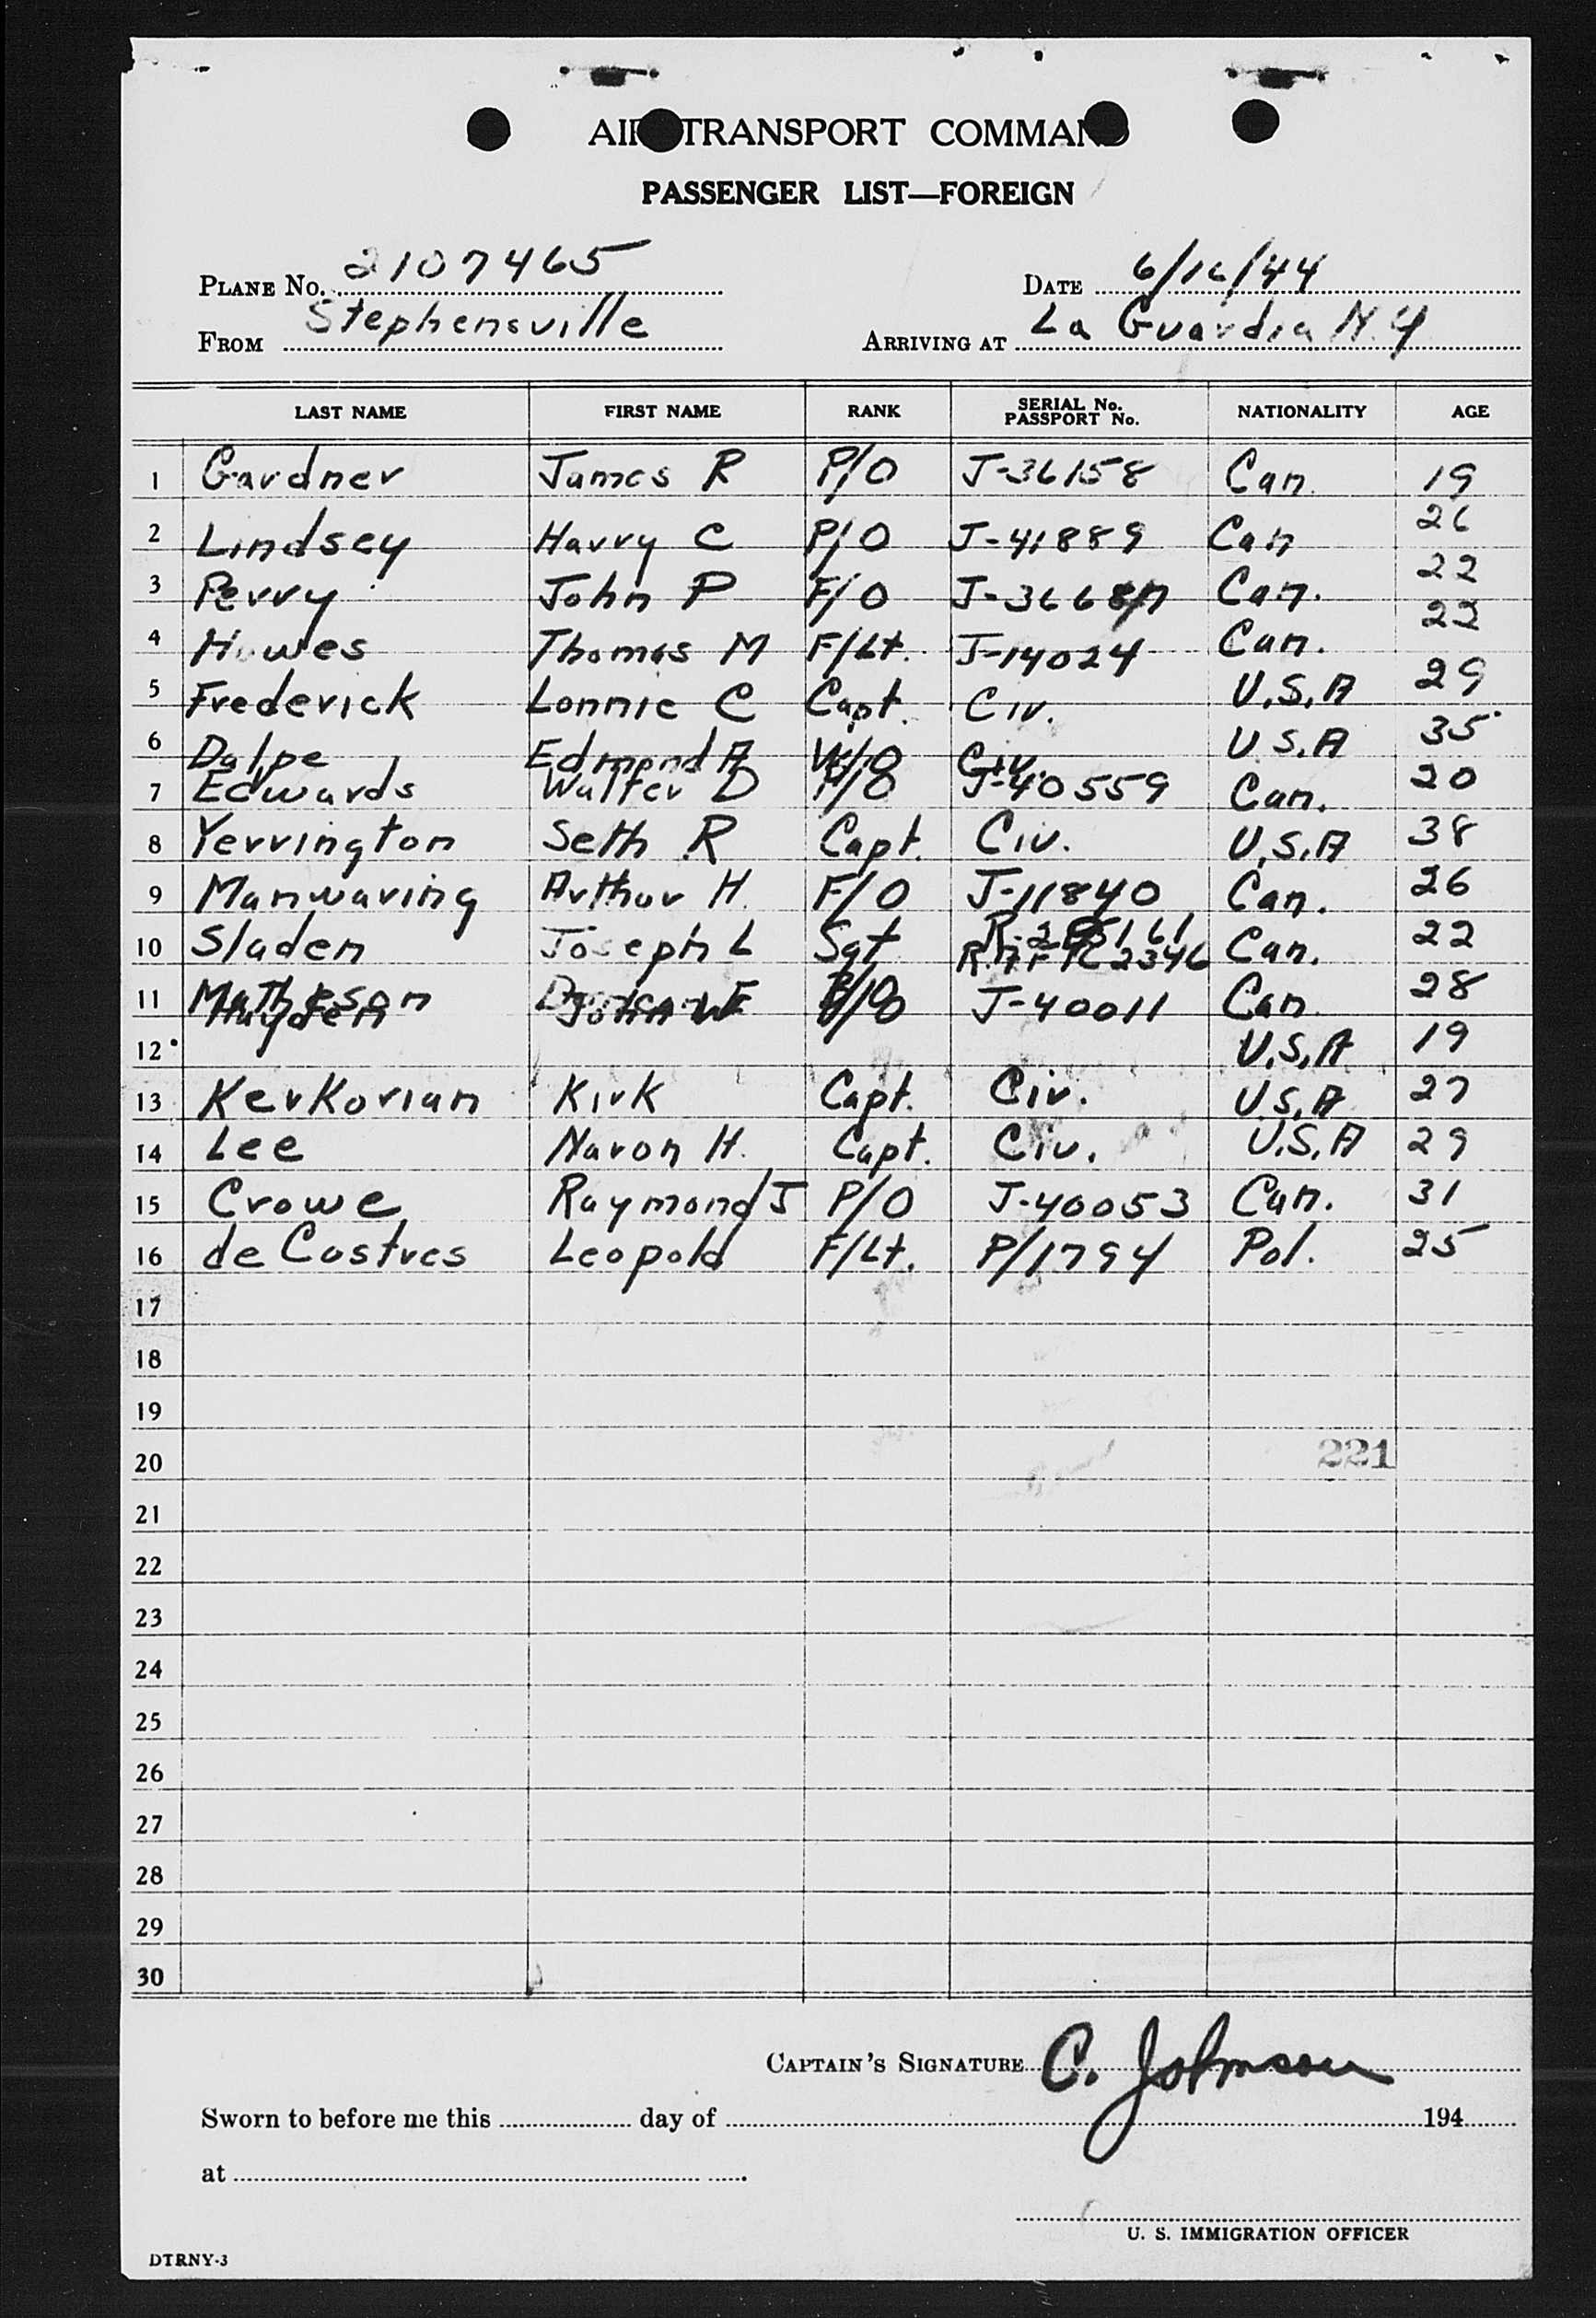 AIR TRANSPORT COMMAND
PASSENGER LIST—FOREIGN
PLANE No. 2107465 DATE 6/16/44
FROM Stephensville ARRIVING AT La Guardia N.Y
LAST NAME FIRST NAME RANK SERIAL No. PASSPORT No. NATIONALITY AGE
1 Gardner James R P/O J-36158 Can. 19
2 Lindsey Harry C P/O J-41889 Can 26
3 Perry John P F/O Can. 22
4 Howes Thomas M F/Lt. J-14024 Can. 22
5 Frederick Lonnie C Capt. Civ. U.S.A 29
6 Dalpe Edmond A Civ. U.S.A 35
7 Edwards Walter D J-40559 Can. 20
8 Yerrington Seth R Capt. Civ. U.S.A 38
9 Manwaring Arthur H. F/O J-11840 Can. 26
10 Sladen Joseph L Sgt Can. 22
11 Matheson J-40011 Can 28
Hayden John W
12 U.S.A 19
13 Kerkorian Kirk Capt. Civ. U.S.A 27
14 Lee Navon H. Capt. Civ. U.S.A 29
15 Crowe Raymond J P/O J-40053 Can. 31
16 de Castres Leopold F/Lt. P/1794 Pol. 25
17
18
19
20 221
21
22
23
24
25
26
27
28
29
30
CAPTAIN'S SIGNATURE C. Johnson
Sworn to before me this day of 194
at
U. S. IMMIGRATION OFFICER
DTRNY-3